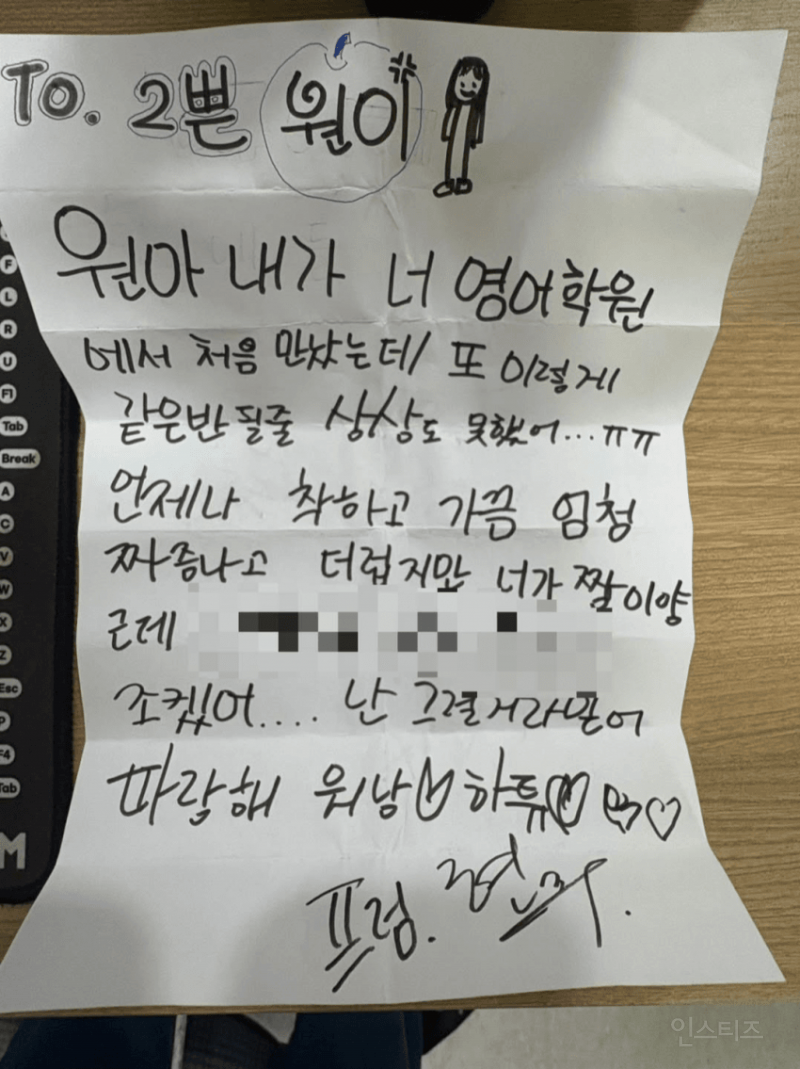 To. 2쁜 원이
원아 내가 너 영어학원
에서 처음 만났는데/ 또 이렇게
같은반 될줄 상상도 못했어...ㅠㅠ
언제나 착하고 가끔 엄청
짜증나고 더럽지만 너가 짱이양
근데
조켔어.... 난 그럴거라믿어
따랑해 워낭♡하튜♡♡
프럼.
F
L
R
U
F1
Tab
Break
A
C
V
W
X
Z
Esc
P
F4
Tab
M
인스티즈